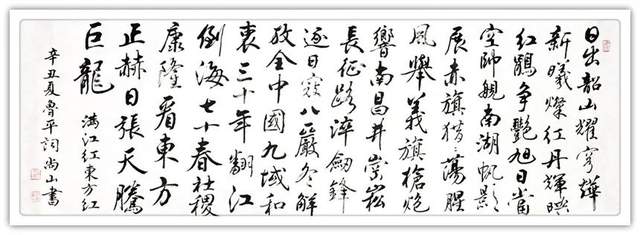 日出韶山耀穹燁
新曦燦红丹輝映
红鵑争艷旭日當
空帥艦南湖帆影
展赤旗猎々蕩腥
風舉義旗槍炮
響南昌井崇崧
長征路淬劍鋒
逐日寇八嚴冬解
放全中國九域和
衷三十年翻江
倒海七十春社稷
康隆看東方
正赫日張天騰
巨龍
满江红東方红
辛丑夏魯平詞尚山書